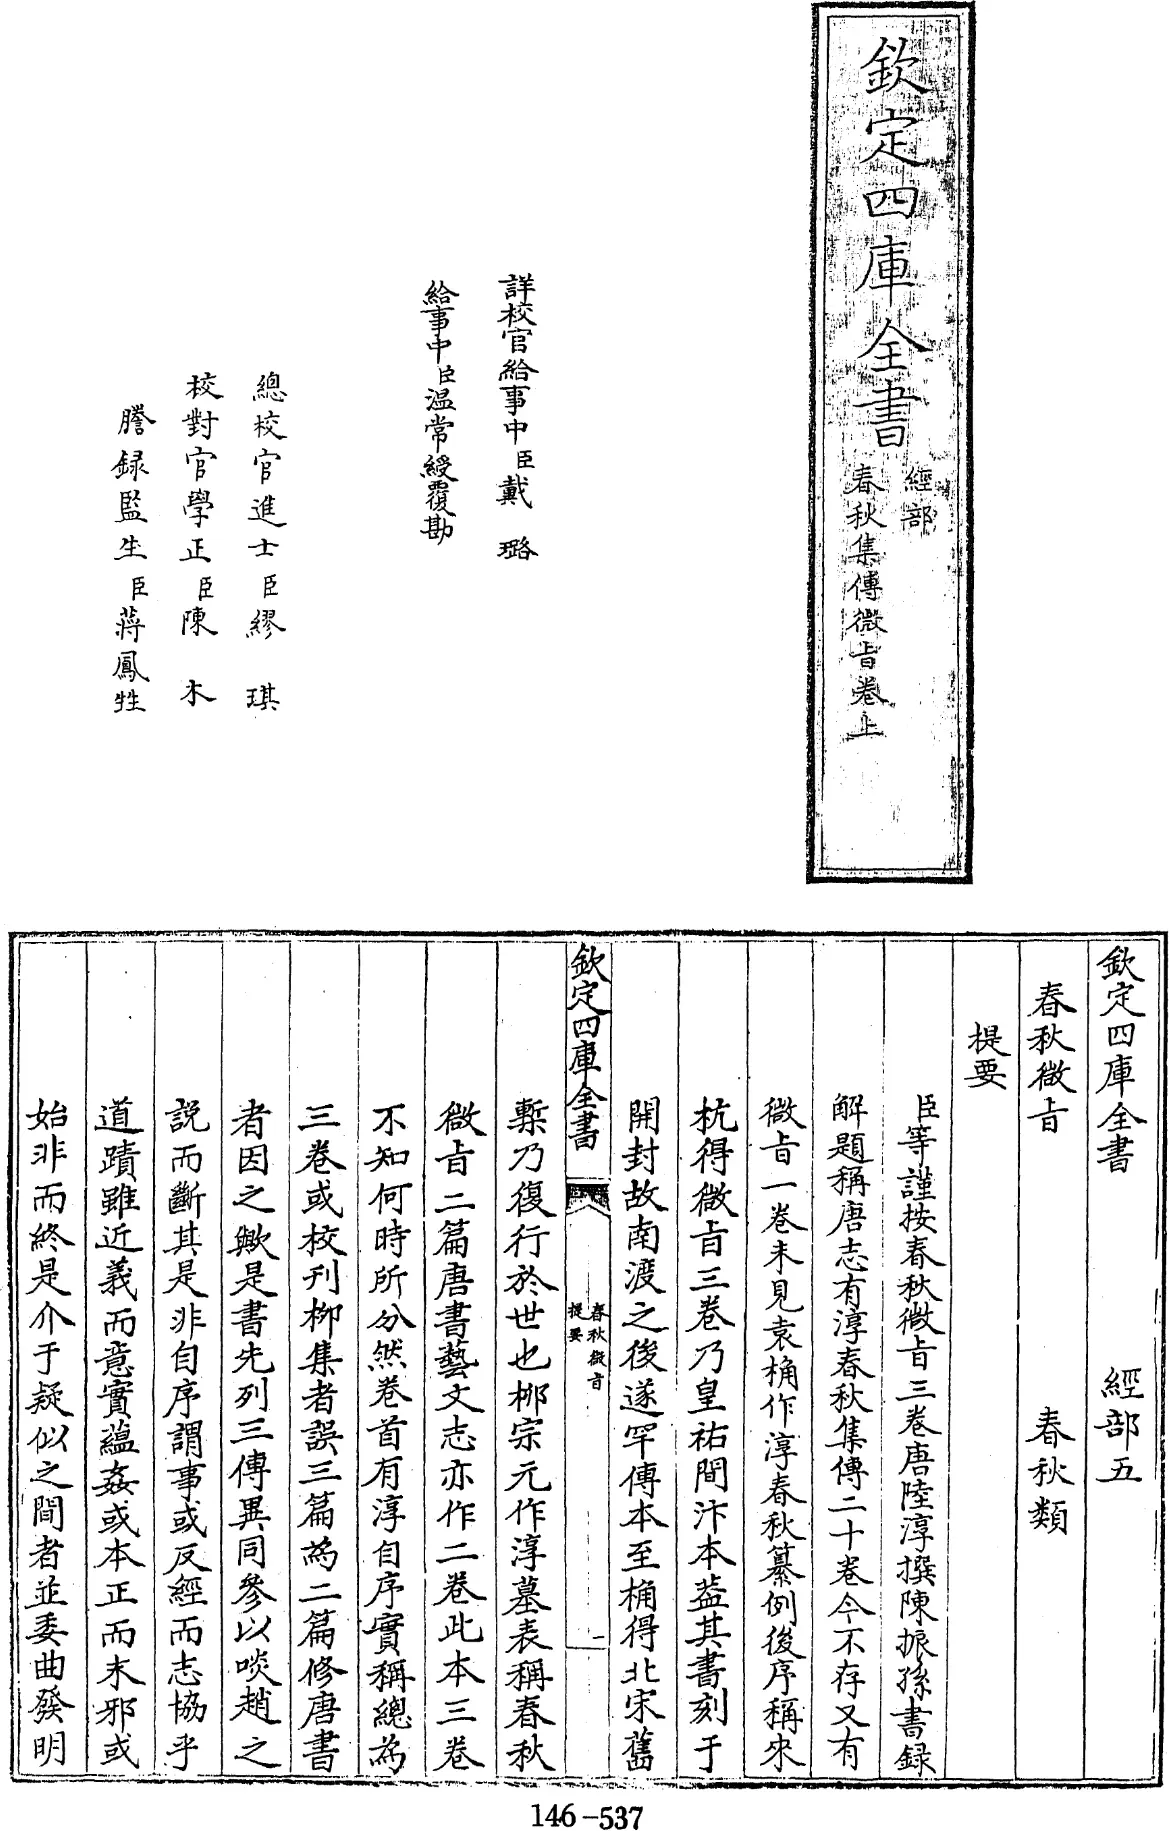 欽定四庫全書
經部
春秋集傳微旨卷上
詳校官給事中臣戴璐
給事中臣温常綬覆勘
總校官進士臣繆琪
校對官學正臣陳木
謄録監生臣蔣鳳牲
欽定四庫全書 經部五
春秋微旨 春秋類
提要
臣等謹按春秋微旨三卷唐陸淳撰陳振孫書録
解題稱唐志有淳春秋集傳二十卷今不存又有
微旨一卷未見袁桷作淳春秋纂例後序稱來
杭得微旨三卷乃皇祐間汴本葢其書刻于
開封故南渡之後遂罕傳本至桷得北宋舊
欽定四庫全書
春秋微旨
提要
一
槧乃復行於世也栁宗元作淳墓表稱春秋
微旨二篇唐書藝文志亦作二卷此本三卷
不知何時所分然卷首有淳自序實稱總為
三卷或校刋栁集者誤三篇為二篇修唐書
者因之歟是書先列三傳異同參以啖趙之
説而斷其是非自序謂事或反經而志協乎
道蹟雖近義而意實蘊姦或本正而末邪或
始非而終是介于疑似之間者並委曲發明
146-537